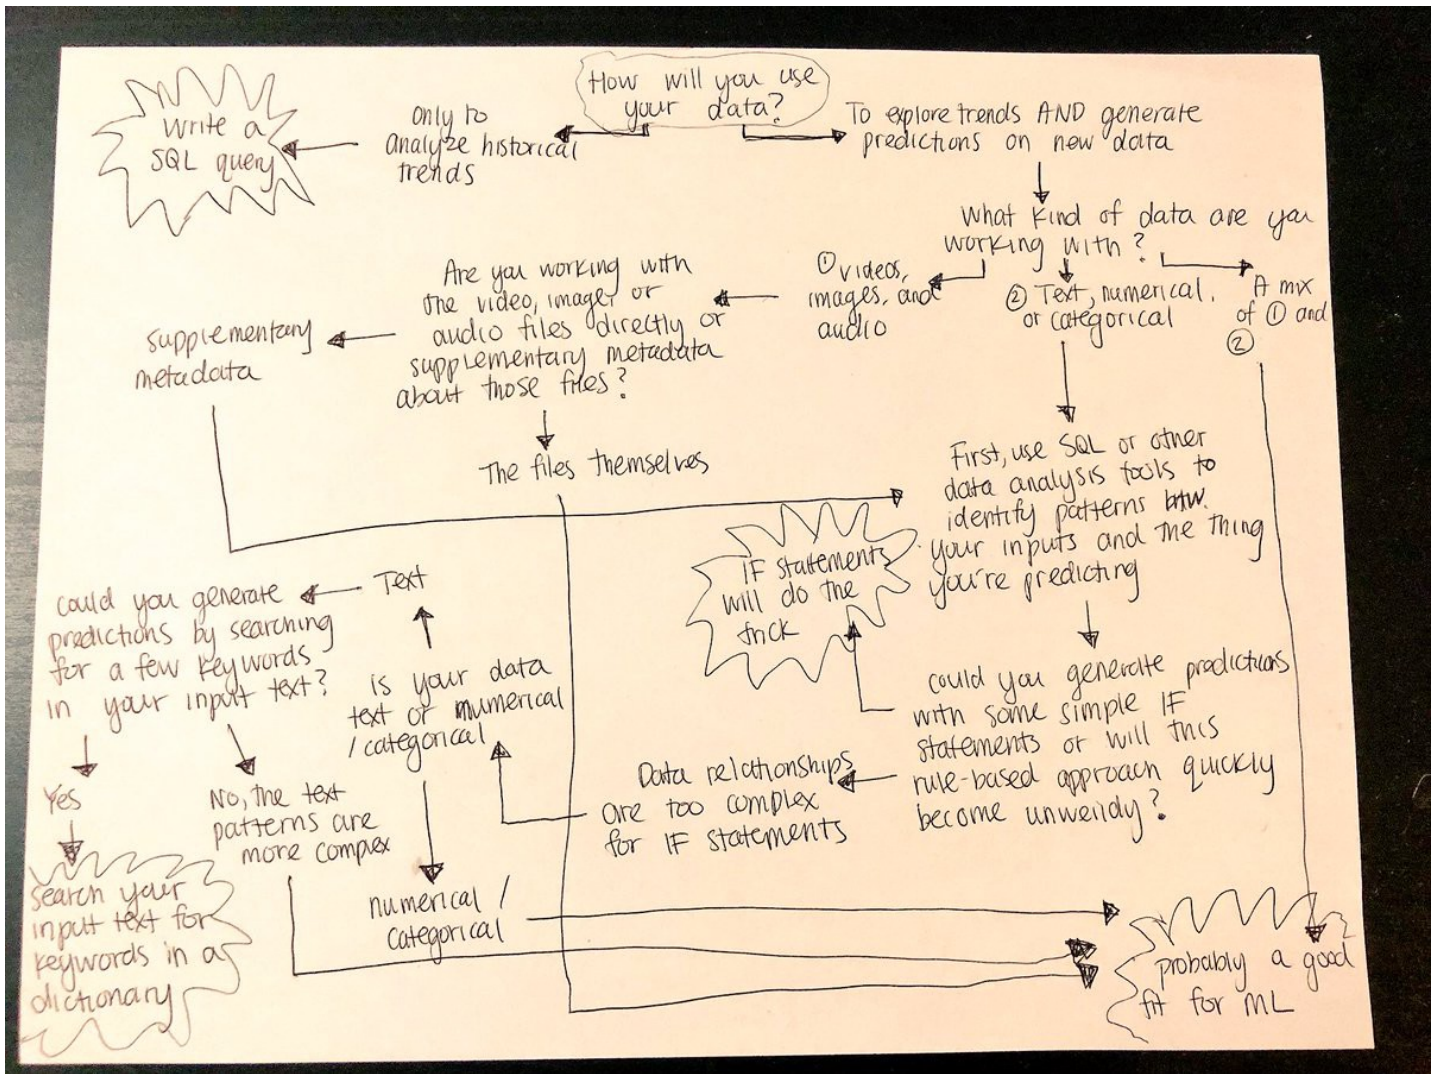 How will you use
your data?
only to
analyze historical
trends
Write a
SQL query
To explore trends AND generate
predictions on new data
What kind of data are you
working with?
① videos,
images, and
audio
② Text, numerical,
or categorical
A mix
of ① and
②
Are you working with
the video, image, or
audio files directly or
supplementary metadata
about those files?
supplementary
metadata
The files themselves
First, use SQL or other
data analysis tools to
identify patterns btw.
your inputs and the thing
you're predicting
IF statements
will do the
trick
could you generate predictions
with some simple IF
statements or will this
rule-based approach quickly
become unweildy?
Data relationships
are too complex
for IF statements
is your data
text or numerical
/categorical
Text
could you generate
predictions by searching
for a few keywords
in your input text?
Yes
search your
input text for
keywords in a
dictionary
No, the text
patterns are
more complex
numerical /
categorical
probably a good
fit for ML